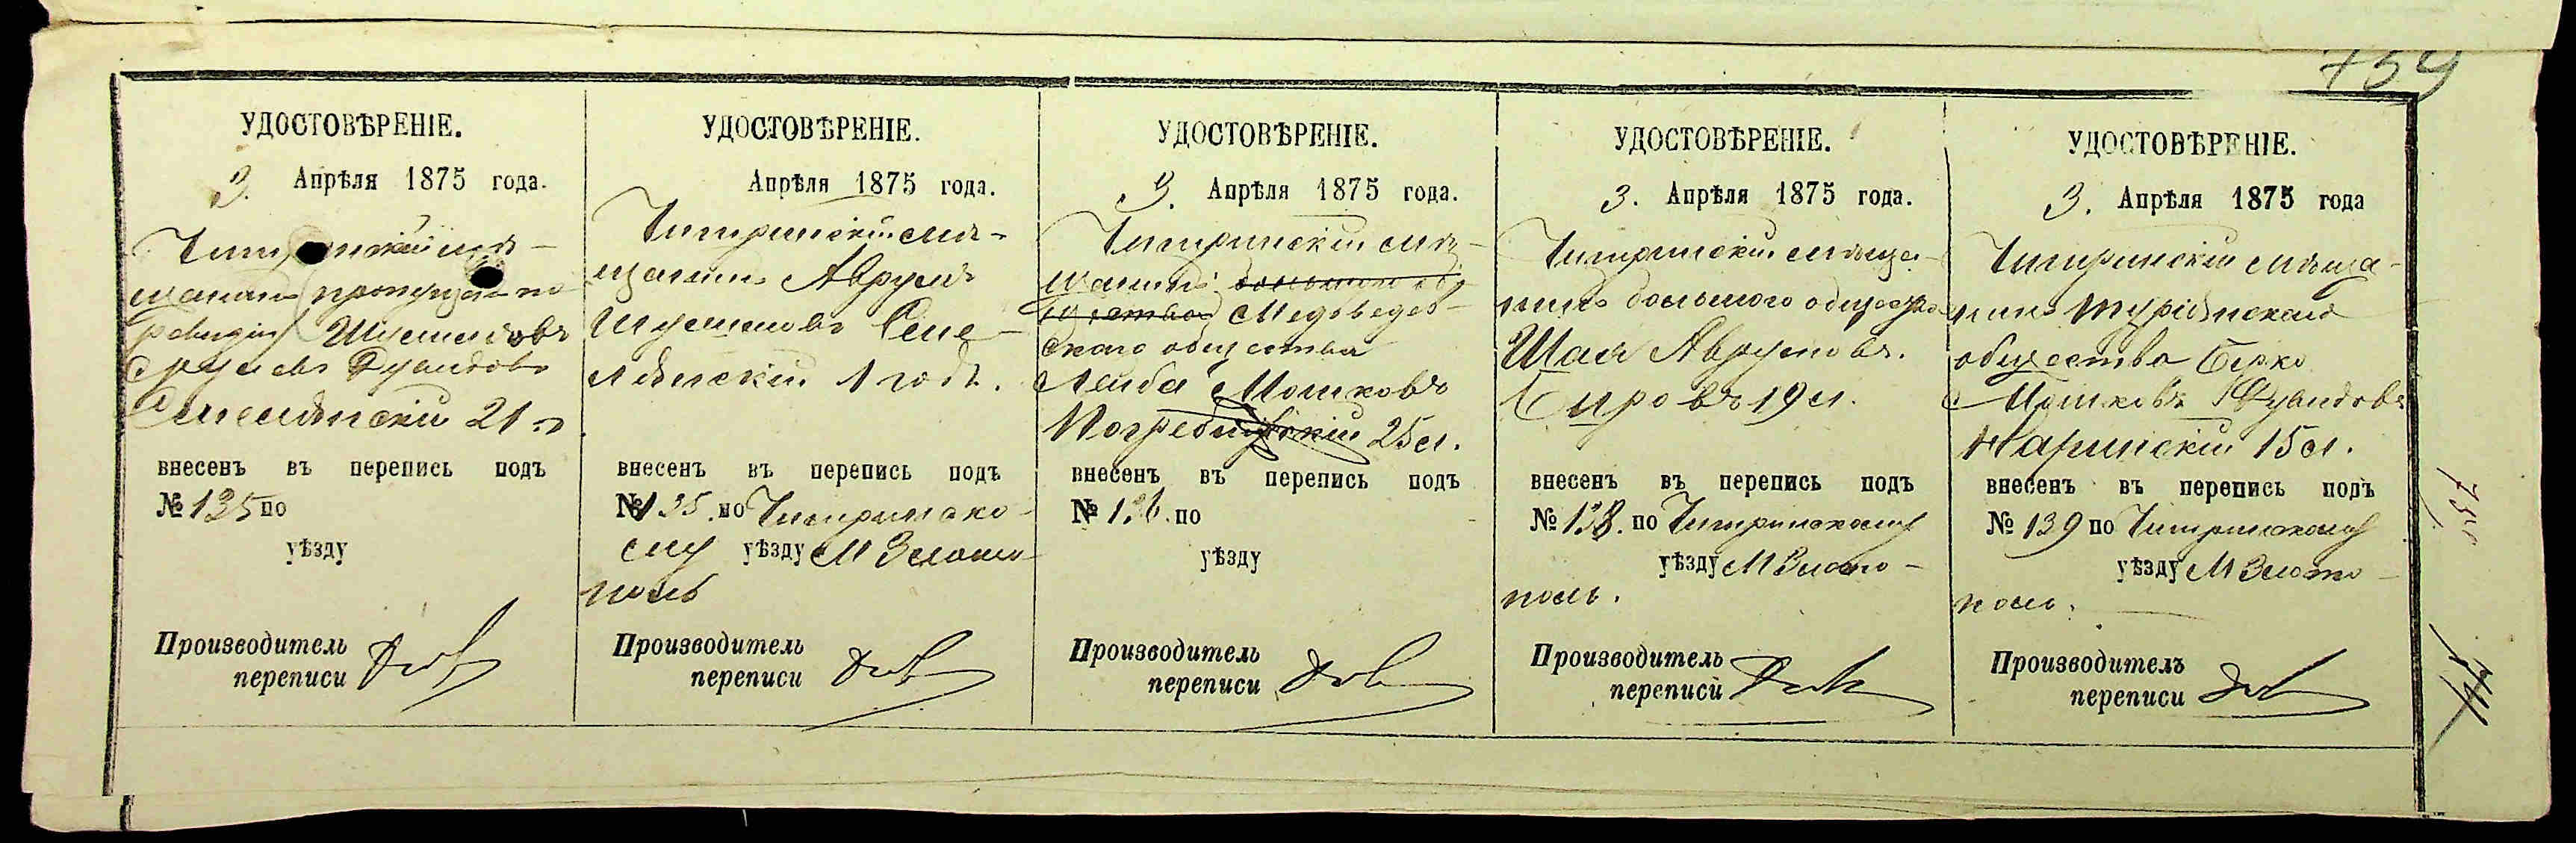 754
УДОСТОВѢРЕНІЕ.
3. Апрѣля 1875 года.
щанинъ пропущен по
ревизіи Шулимовъ
21
внесенъ въ перепись подъ
№ 135 по
уѣзду
Производитель
переписи
УДОСТОВѢРЕНІЕ.
Апрѣля 1875 года.
Чигринскій мѣ-
щанинъ Аврумъ
Шулимовъ
1 годъ.
внесенъ въ перепись подъ
№ 135. по Чигринско-
му уѣзду М Злато-
поль
Производитель
переписи
УДОСТОВѢРЕНІЕ.
3. Апрѣля 1875 года.
Чигринскій мѣ-
щанинъ
Медведов-
скаго общества
Лейба Мошковъ
25 л.
внесенъ въ перепись подъ
№ 136. по
уѣзду
Производитель
переписи
УДОСТОВѢРЕНІЕ.
3. Апрѣля 1875 года.
Чигринскій мѣща-
нинъ большого общества
Шая Аврумовъ.
19 л.
внесенъ въ перепись подъ
№ 138. по Чигринскому
уѣзду М Злато-
поль.
Производитель
переписи
УДОСТОВѢРЕНІЕ.
3. Апрѣля 1875 года
Чигринскій мѣща-
нинъ
общества Берко
Мошковъ
15 л.
внесенъ въ перепись подъ
№ 139 по Чигринскому
уѣзду М Злато-
поль.
Производитель
переписи